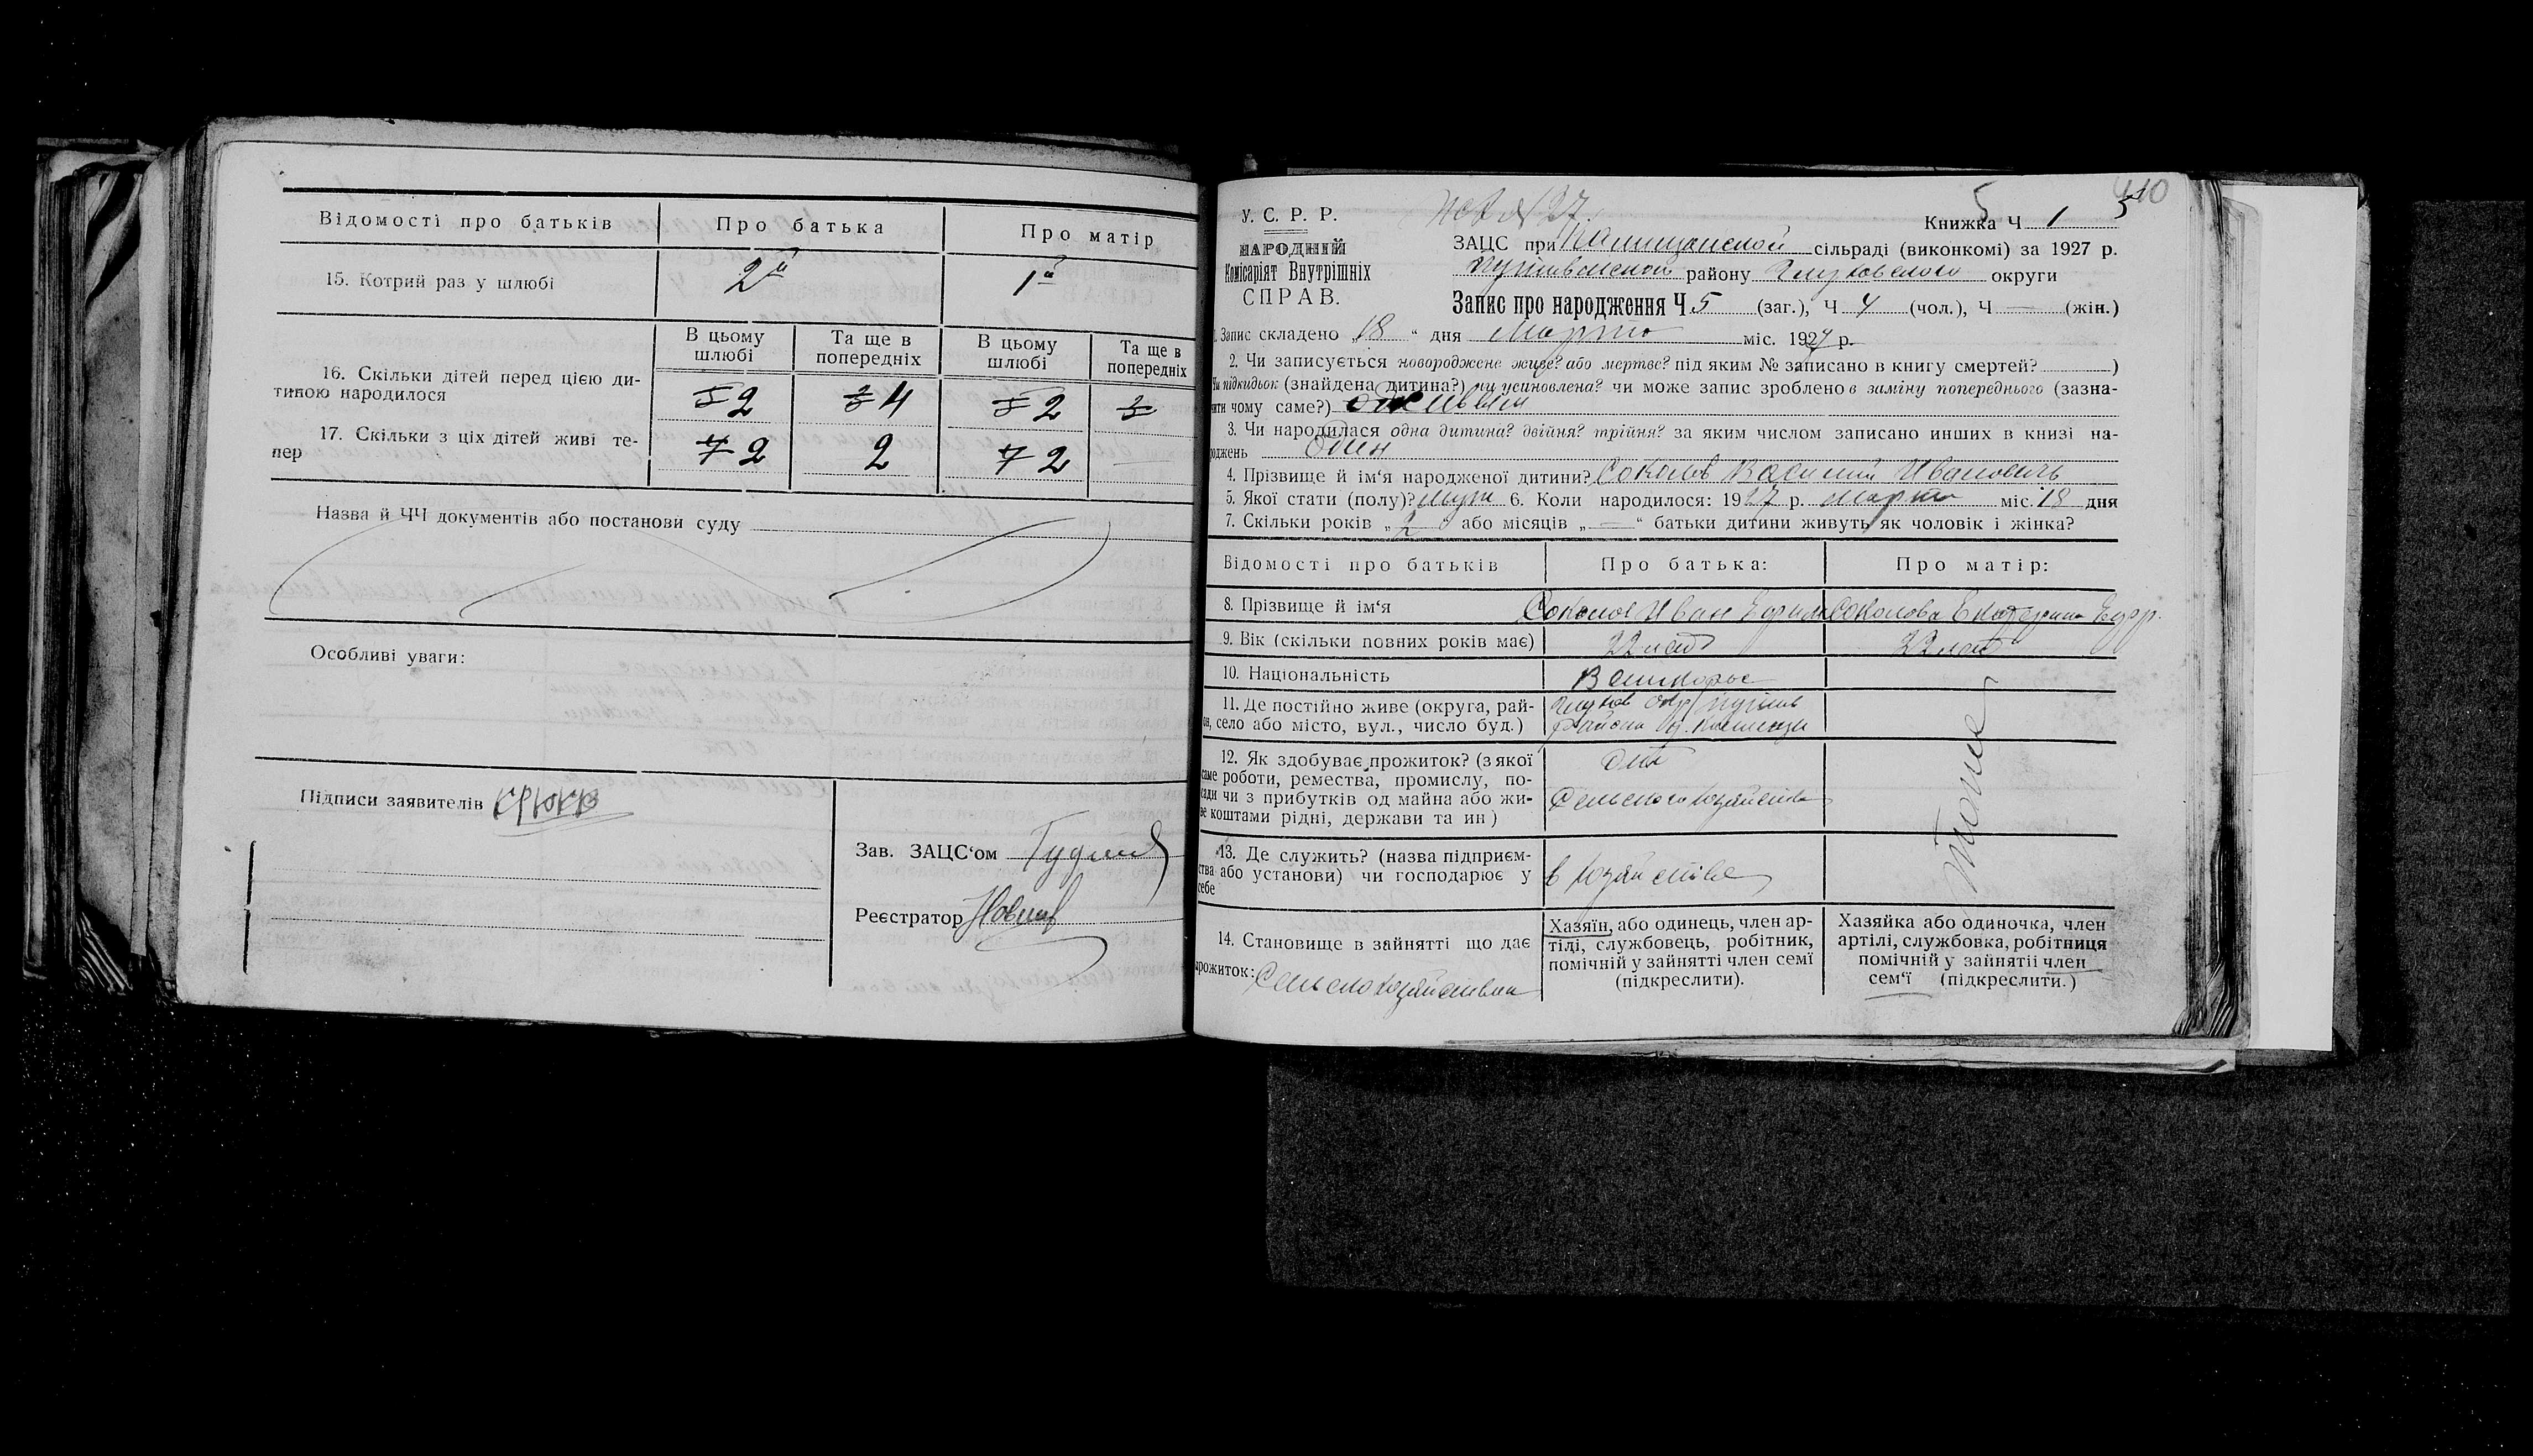 Відомості про батьків Про батька Про матір
15. Котрий раз у шлюбі 2й 1й
В цьому шлюбі Та ще в попередніх В цьому шлюбі Та ще в попередніх
16. Скільки дітей перед цією ди-
тиною народилося 2 4 2
17. Скільки з ціх дітей живі те-
пер 2 2 2
Назва й ЧЧ документів або постанови суду
Особливі уваги:
Підписи заявителів
Зав. ЗАЦС‘ом
Реєстратор
410
У. С. Р. Р.
Книжка Ч 1
НАРОДНІЙ
Комісаріят Внутрішніх
СПРАВ.
ЗАЦС при сільраді (виконкомі) за 1927 р.
району Глуховского округи
Запис про народження Ч 5 (заг.), Ч 4 (чол.), Ч — (жін.)
1. Запис складено 18 “ дня Марта міс. 1927 р.
2. Чи записується новороджене живе? або мертве? під яким № записано в книгу смертей? )
Чи підкидьок (знайдена дитина?) чи усиновлена? чи може запис зроблено в заміну попереднього (зазна-
чити чому саме?)
3. Чи народилася одна дитина? двійня? трійня? за яким числом записано инших в книзі на-
роджень Один
4. Прізвище й ім‘я народженої дитини? Соколов Василий Иванович
5. Якої стати (полу)? муж 6. Коли народилося: 1927 р. марта міс. 18 дня
7. Скільки років „ 2 “ або місяців „ — “ батьки дитини живуть як чоловік і жінка?
Відомості про батьків Про батька: Про матір:
8. Прізвище й ім‘я Соколов Иван Ефим Соколова Екатерина Егор.
9. Вік (скільки повних років має) 22 лет 22 лет
10. Національність Великорос
11. Де постійно живе (округа, рай-
он, село або місто, вул., число буд.) Глухов окр Путивл
района
12. Як здобуває прожиток? (з якої
саме роботи, ремества, промислу, по-
сади чи з прибутків од майна або жи-
ве коштами рідні, держави та ин) От
Сельского хозяйства
тоже
13. Де служить? (назва підприєм-
ства або установи) чи господарює у
себе в хозяйстве
14. Становище в зайнятті що дає
прожиток: Сельско хозяйствен
Хазяїн, або одинець, член ар-
тілі, службовець, робітник,
помічній у зайнятті член семї
(підкреслити).
Хазяйка або одиночка, член
артілі, службовка, робітниця
помічній у зайнятіі член
сем‘ї (підкреслити.)